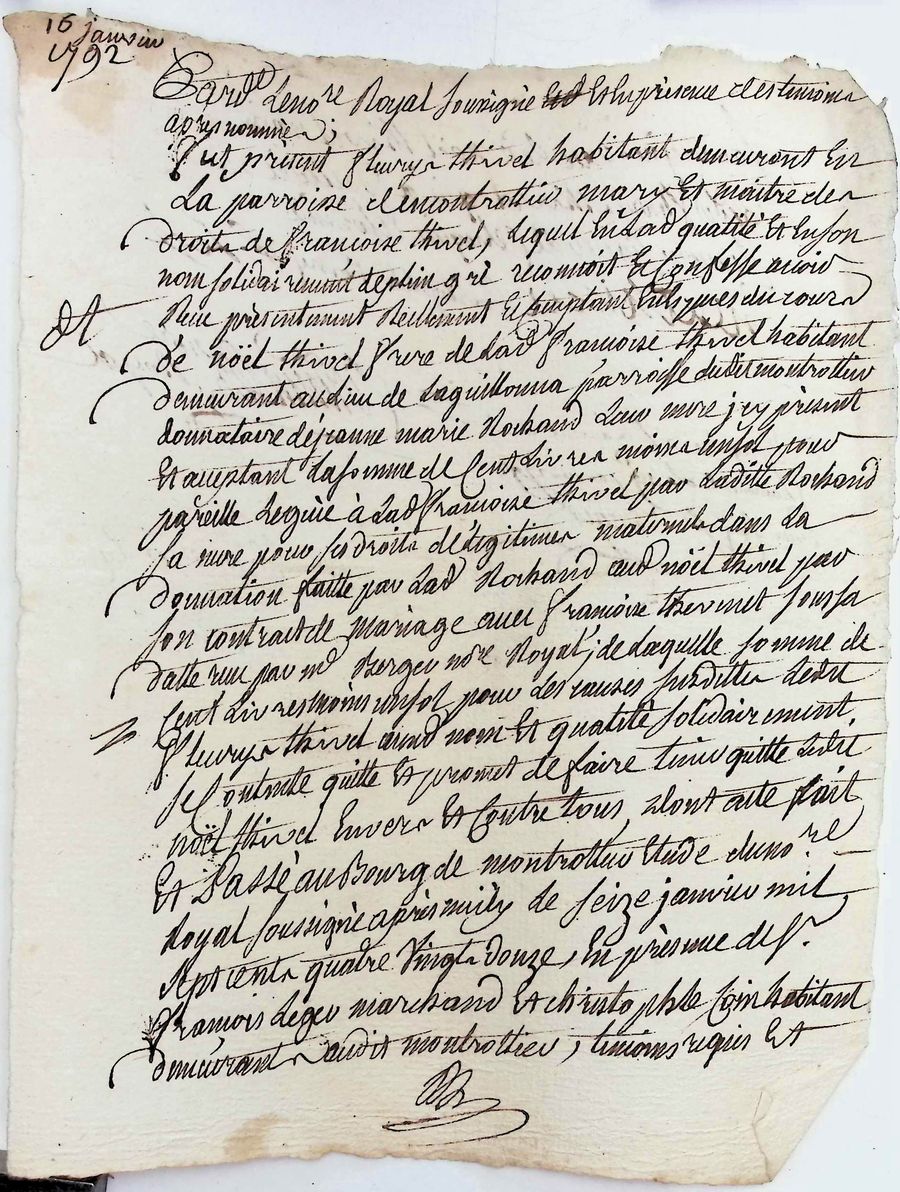 16 janvier
1792
Pard.t Le no.re Royal soussigné Et En présence des témoins
après nommés ;
fut présent fleury thivel habitant demeurant En
La parroise de montrottier mary Et maitre des
droits de françoise thivel, Lequel En Lad qualité Et En son
nom solidairement de plein gré reconnoit Et Confesse avoir
Reçu présentement Reellement Et Comptant En Espèces du cours
De noël thivel frere de Lad françoise thivel habitant
demeurant au Lieu de Laguillonna parroisse dudit montrottier
donnataire de jeanne marie Rochand Leur mere icy présent
Et acceptant La somme de Cent Livres moins un sol pour
pareille Leguée à Lad françoise thivel par Ladite Rochand
sa mere pour ses droits de Légitimes maternels dans La
donnation faitte par Lad Rochand aud noël thivel par
son contrat de mariage avec françoise thermet sous sa
datte reçu par m.e Berger no.re Royal ; de Laquelle somme de
Cent Livres moins un sol pour Les causes susdittes Ledit
fleury thivel aud nom Et qualité solidairement
se Contente quitte Et promet de faire tenir quitte Ledit
noël thivel Envers Et Contre tous, dont acte fait
Et Passé au Bourg de montrottier Etude du no.re
Royal soussigné après midy Le seize janvier mil
sept cents quatre Vingts douze, En présence de s.r
françois Leger marchand Et christophle Coin habitant
demeurants audit montrottier, témoins requis Et